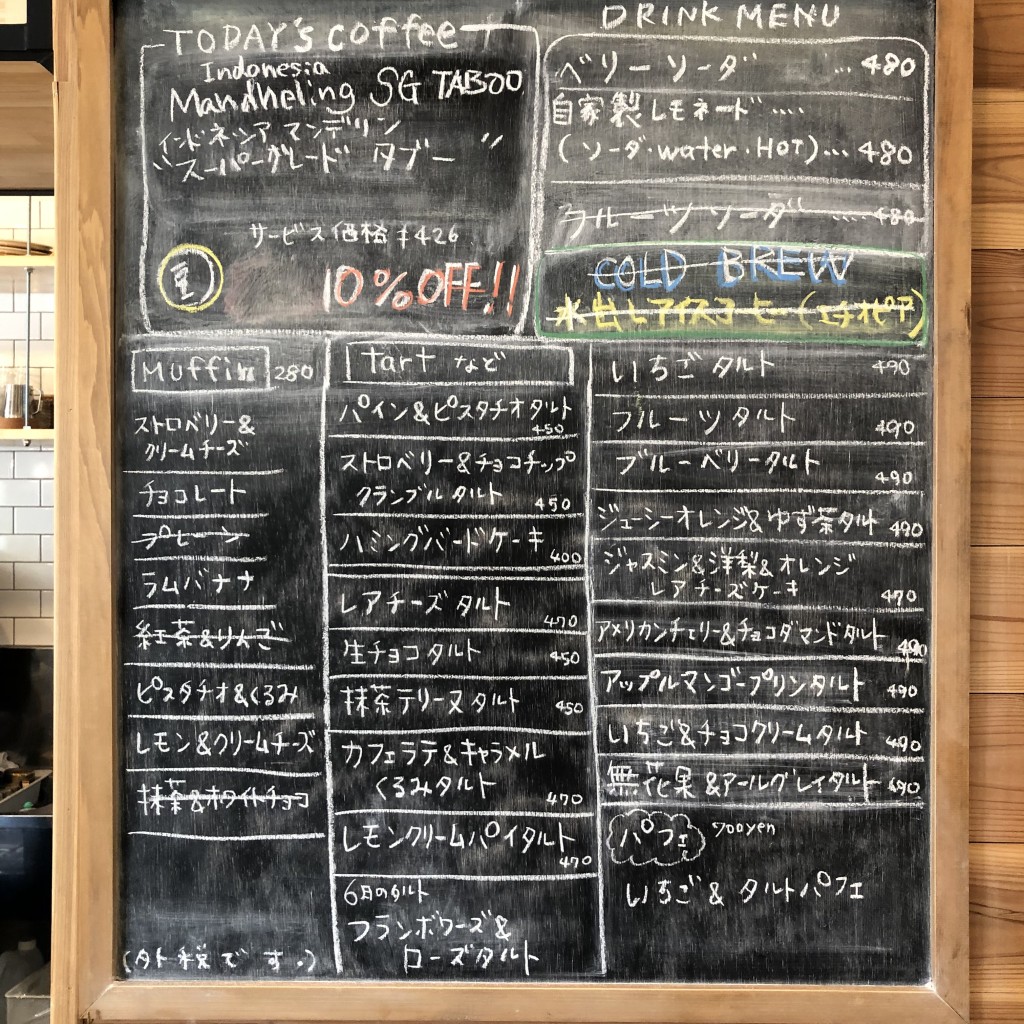 TODAY's coffee
Indonesia
Mandheling SG TABOO
インドネシア マンデリン
"スーパーグレード タブー"
サービス価格 ¥426
豆 10%OFF!!
DRINK MENU
ベリーソーダ ... 480
自家製レモネード ....
(ソーダ・water・HOT)... 480
フルーツソーダ .... 480
COLD BREW
水出しアイスコーヒー(エチオピア)
Muffin 280
ストロベリー&
クリームチーズ
チョコレート
プレーン
ラムバナナ
紅茶&りんご
ピスタチオ&くるみ
レモン&クリームチーズ
抹茶&ホワイトチョコ
(外税です。)
tart など
パイン&ピスタチオタルト
450
ストロベリー&チョコチップ
クランブルタルト 450
ハミングバードケーキ 400
レアチーズタルト 470
生チョコタルト 450
抹茶テリーヌタルト 450
カフェラテ&キャラメル
くるみタルト 470
レモンクリームパイタルト
470
6月のタルト
フランボワーズ&
ローズタルト
いちごタルト 490
フルーツタルト 490
ブルーベリータルト 490
ジューシーオレンジ&ゆず茶タルト 490
ジャスミン&洋梨&オレンジ
レアチーズケーキ 470
アメリカンチェリー&チョコダマンドタルト 490
アップルマンゴープリンタルト 490
いちご&チョコクリームタルト 490
無花果&アールグレイタルト 490
パフェ 700yen
いちご&タルトパフェ